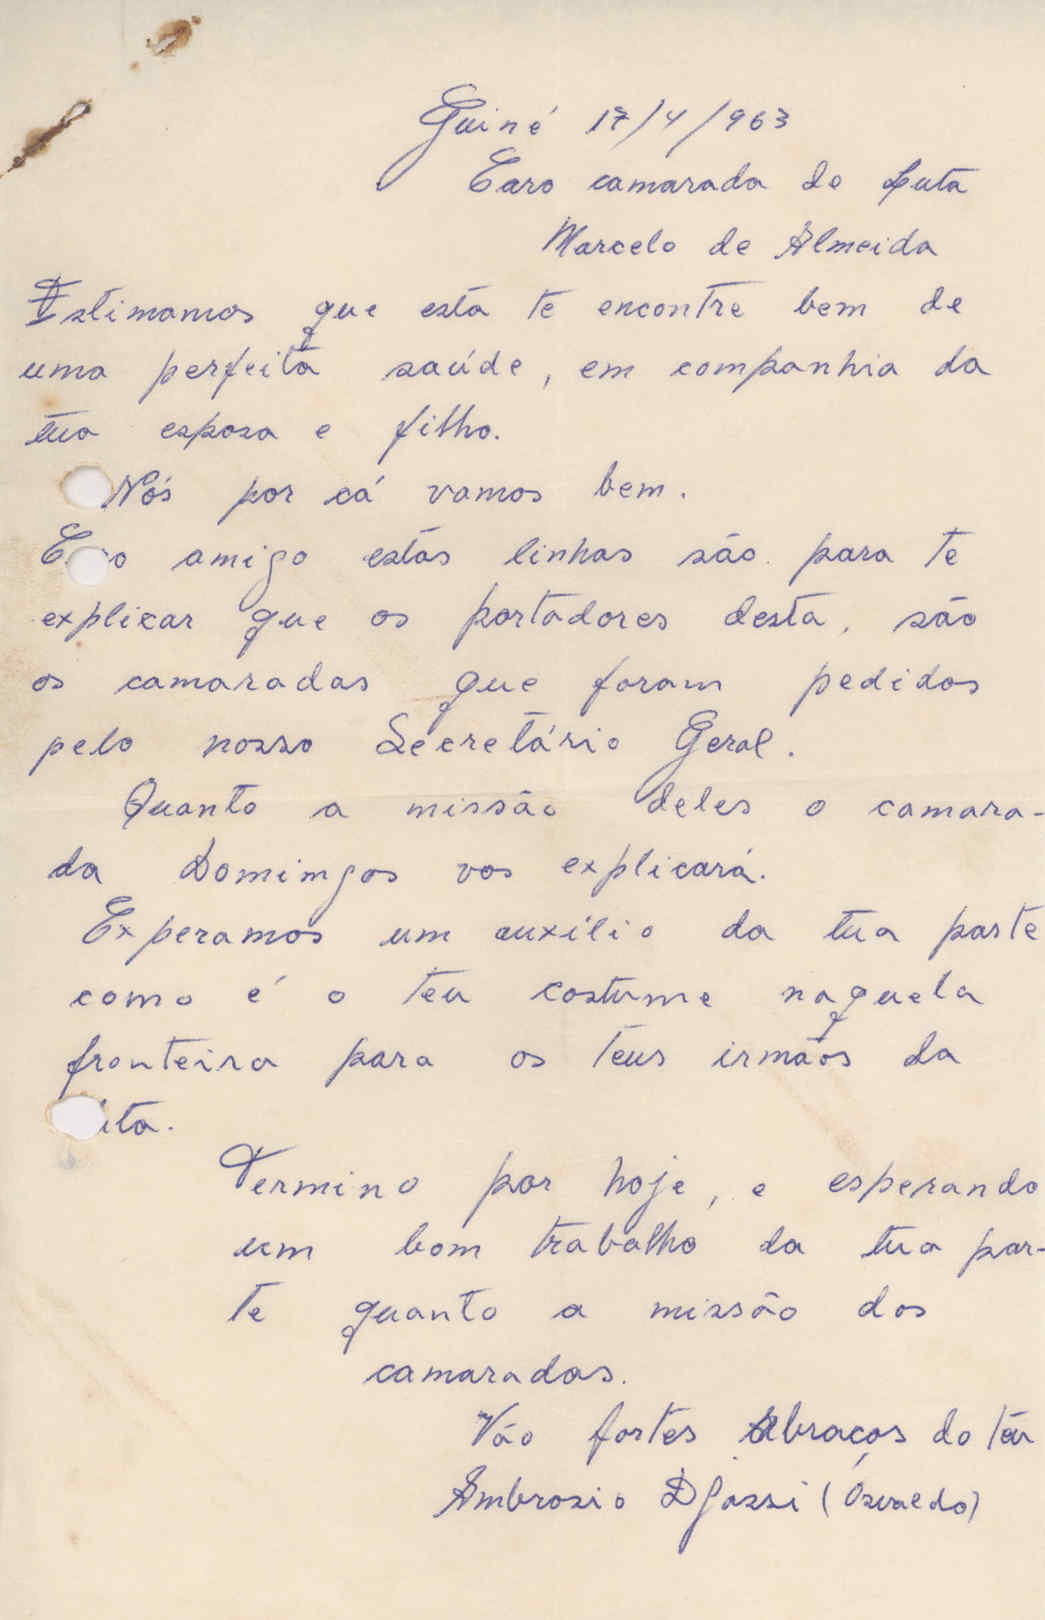 Guiné 17/4/963
Caro camarada de Luta
Marcelo de Almeida
Estimamos que esta te encontre bem de
uma perfeita saúde, em companhia da
tua esposa e filho.
Nós por cá vamos bem.
amigo estas linhas são para te
explicar que os portadores desta, são
os camaradas que foram pedidos
pelo nosso Secretário Geral.
Quanto a missão deles o camara-
da Domingos vos explicará.
Experamos um auxílio da tua parte
como é o teu costume naquela
fronteira para os teus irmãos da
Termino por hoje, e esperando
um bom trabalho da tua par-
te quanto a missão dos
camaradas.
Vão fortes Abraços do teu
Ambrosio Djassi (Osvaldo)